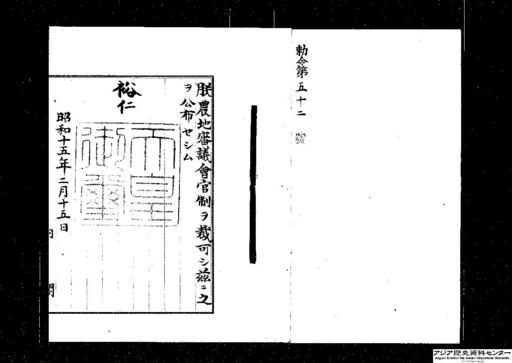 勅令第五十二
朕農地審議會官制ヲ裁可シ茲ニ之
ヲ公布セシム
裕仁
天皇御璽
昭和十五年二月十五日
内閣
アジア歴史資料センター
Japan Center for Asian Historical Records